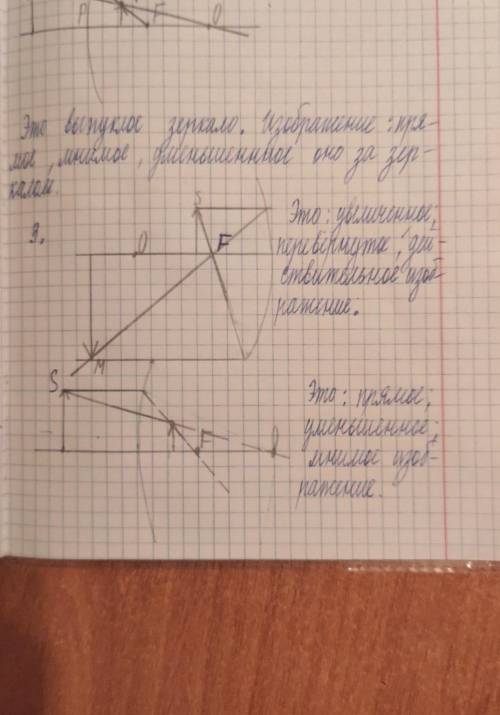 A F O
Это выпуклое зеркало. Изображение: пря-
мое, мнимое, уменьшенное оно за зер-
калом.
3.
S
O F
M
Это: увеличенное;
перевернутое; дей-
ствительное изоб-
ражение.
S
F
Это: прямое;
уменьшенное;
мнимое изоб-
ражение.